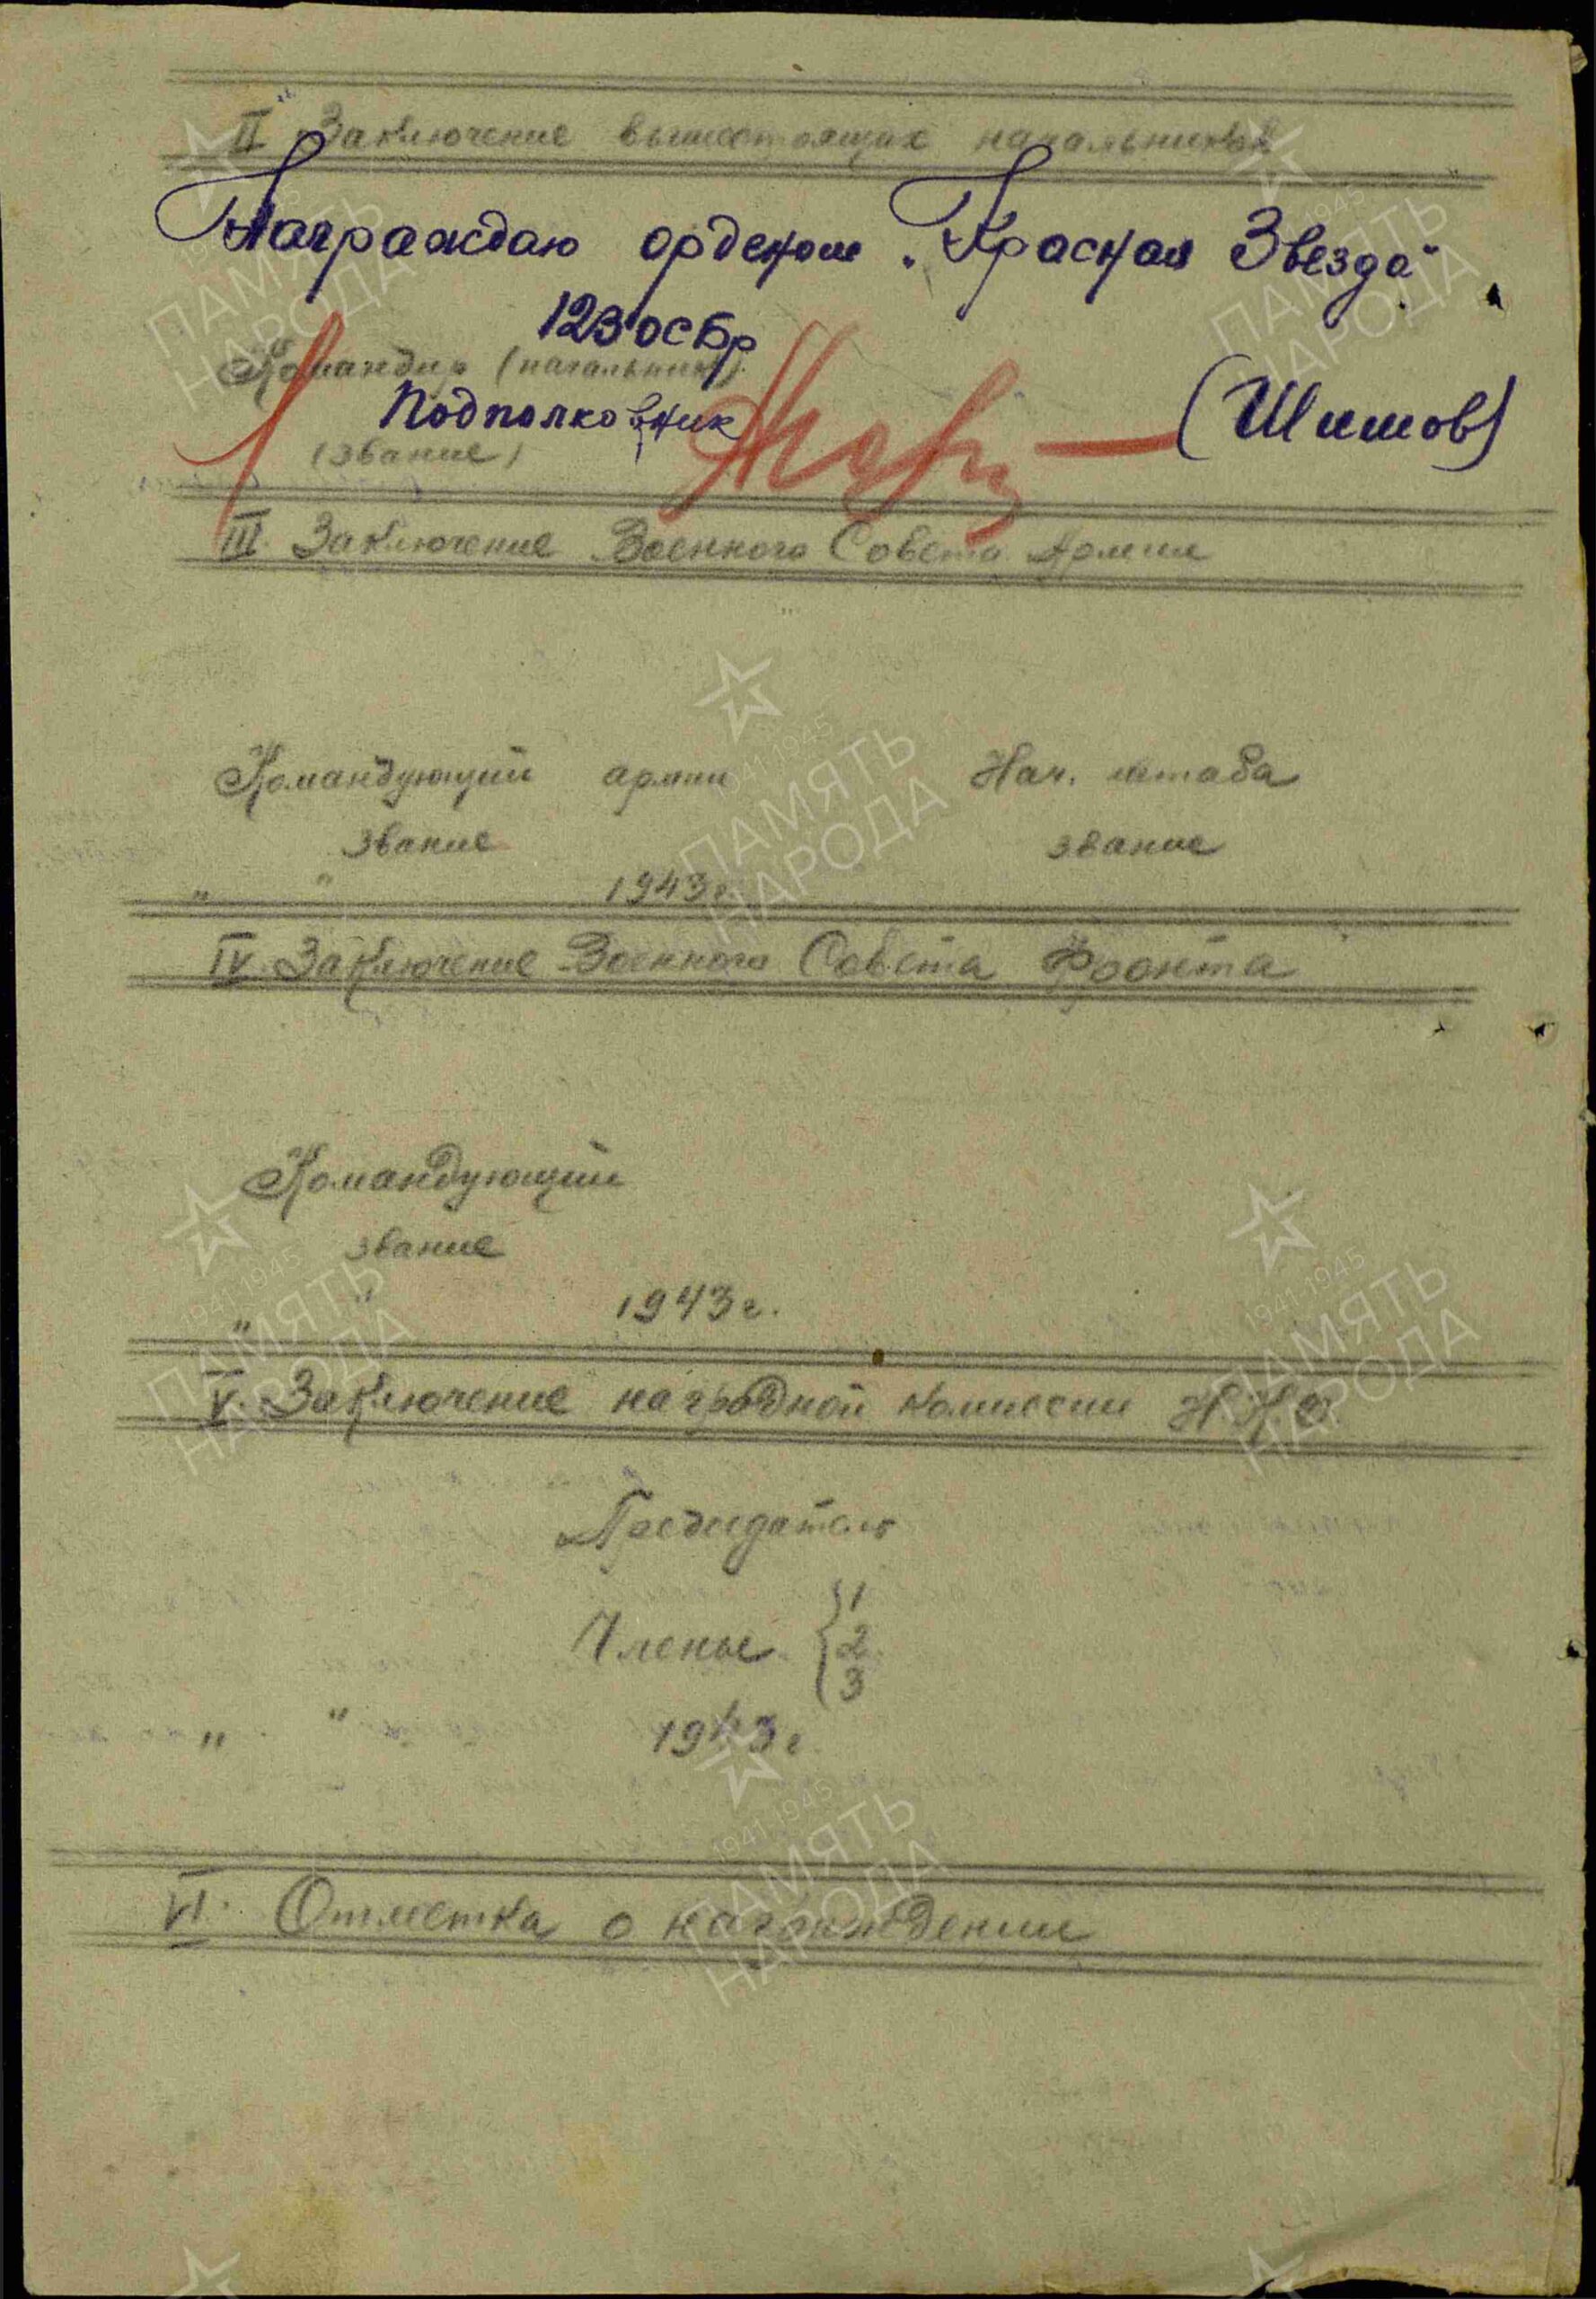 II Заключение вышестоящих начальников
Награждаю орденом „Красная Звезда"
123 ОСБр
Командир (начальник)
Подполковник (Шишов)
(звание)
III. Заключение Военного Совета Армии
Командующий армии Нач. штаба
звание звание
" " 1943 г.
IV. Заключение Военного Совета Фронта
Командующий
звание
" " 1943 г.
V. Заключение наградной комиссии Н.К.О.
Председатель
Члены { 1
2
3
" " 1943 г.
VI. Отметка о награждении
1941-1945
ПАМЯТЬ
НАРОДА